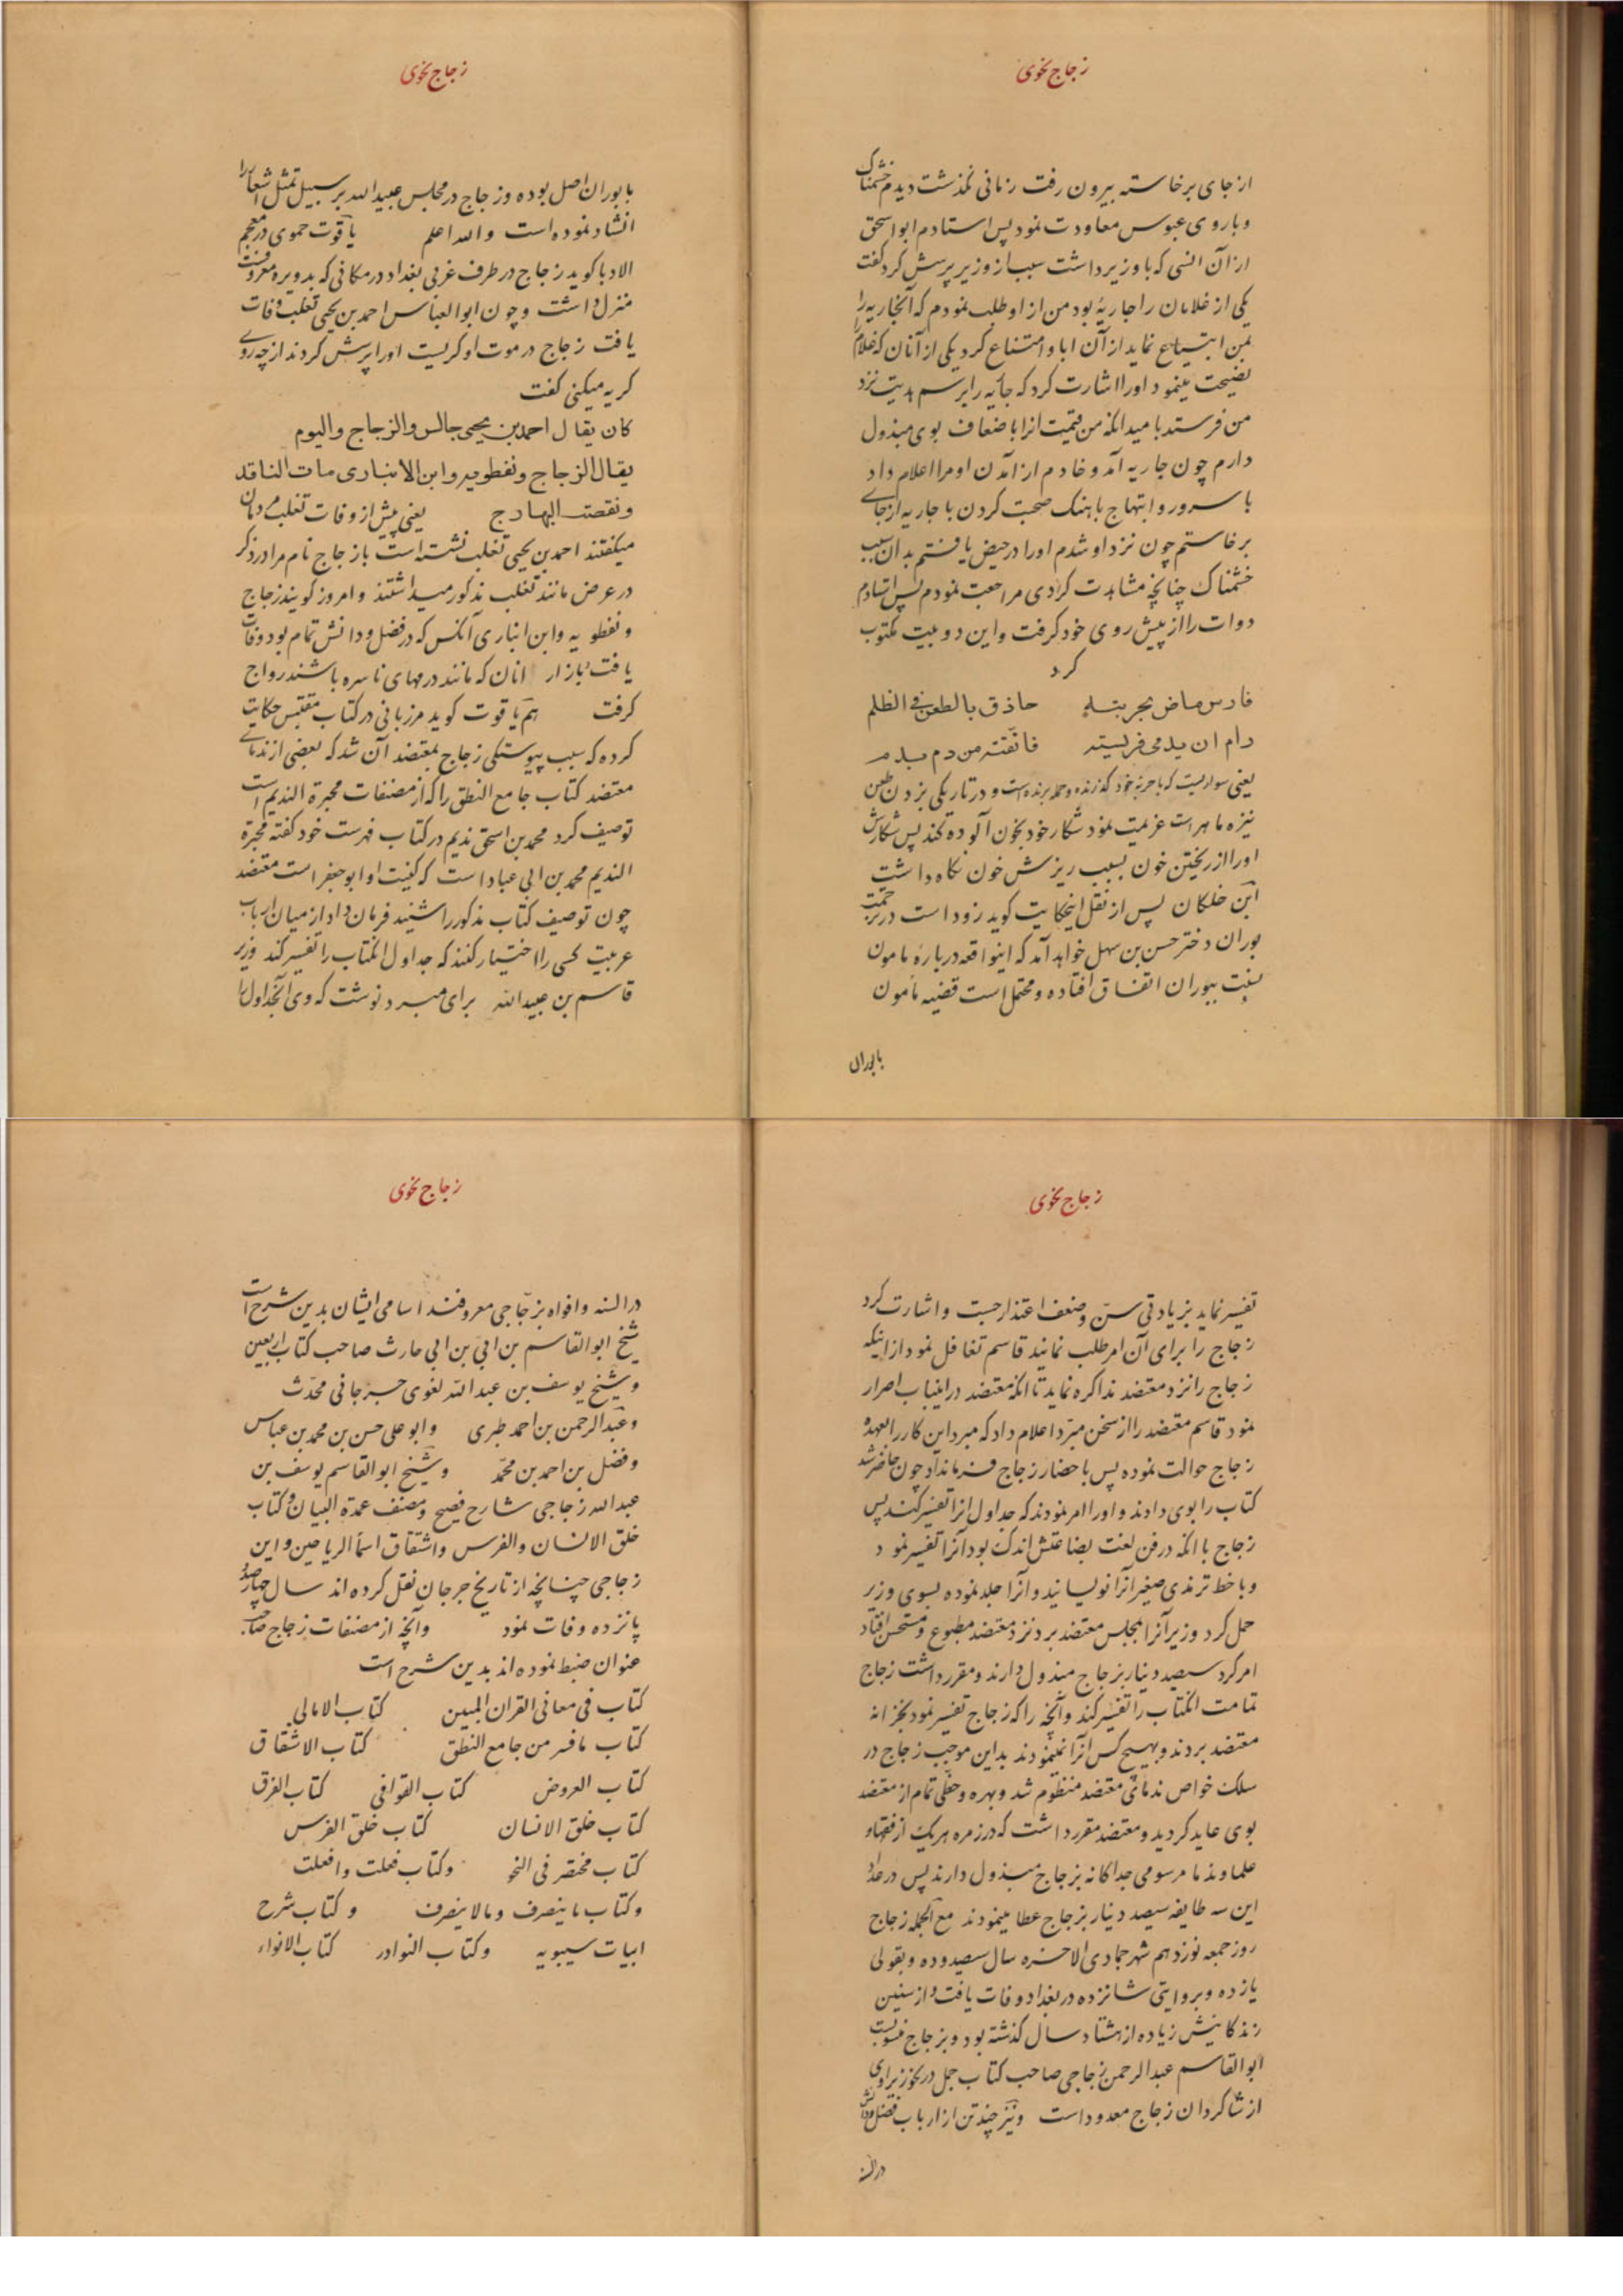 زجاج نحوی
از جای برخاسته بیرون رفت زمانی نگذشت دیدم خشمناک
و با روی عبوس معاودت نمود پس استادم ابو اسحق
از آن انسی که با وزیر داشت سبب از وزیر پرسش کرد گفت
یکی از غلامان را جاریهٔ بود من از او طلب نمودم که آنجاریه را
بمن ابتیاع نماید از آن ابا و امتناع کرد یکی از آنان که غلام را
نصیحت مینمود او را اشارت کرد که جاریه را برسم هدیت نزد
من فرستد بامید آنکه من قیمت انرا باضعاف بوی مبذول
دارم چون جاریه آمد و خادم از آمدن او مرا اعلام داد
با سرور و ابتهاج باهنگ صحبت کردن با جاریه از جای
برخاستم چون نزد او شدم او را در حیض یافتم بدان سبب
خشمناک چنانچه مشاهدت کردی مراجعت نمودم پس استادم
دوات را از پیش روی خود گرفت و این دو بیت مکتوب
کرد
فارس ماض بحربته حاذق بالطعن فی الظلم
رام ان یدمی فریسته فاتقته من دم بدم
یعنی سواریست که با حربهٔ خود گذرنده و حمله برنده است و در تاریکی بزدن طعن
نیزه ماهر است عزیمت نمود شکار خود بخون آلوده کند پس شکارش
او را از ریختن خون بسبب ریزش خون نگاه داشت
ابن خلکان پس از نقل اینحکایت گوید زود است در ترجمت
بوران دختر حسن بن سهل خواهد آمد که اینواقعه دربارهٔ مامون
نسبت ببوران اتفاق افتاده و محتمل است قضیه مامون
با بوران
زجاج نحوی
با بوران اصل بوده و زجاج در مجلس عبیدالله بر سبیل تمثل اشعار را
انشاد نموده است والله اعلم یاقوت حموی در معجم
الادبا گوید زجاج در طرف غربی بغداد در مکانی که بدویره معروفست
منزل داشت و چون ابوالعباس احمد بن یحیی ثعلب وفات
یافت زجاج در موت او گریست او را پرسش کردند از چه روی
گریه میکنی گفت
کان یقال احمد بن یحیی جالس والزجاج والیوم
یقال الزجاج ونفطویه وابن الانباری مات الناقد
ونفقت البهارج یعنی پیش از وفات ثعلب مردمان
میگفتند احمد بن یحیی ثعلب نشسته است با زجاج نام مرا در ذکر
در عرض مانند ثعلب مذکور میداشتند و امروز گویند زجاج
و نفطویه و ابن انباری آنکس که در فضل و دانش تمام بود وفات
یافت بازار انان که مانند درمهای ناسره باشند رواج
گرفت هم یاقوت گوید مرزبانی در کتاب مقتبس حکایت
کرده که سبب پیوستگی زجاج بمعتضد آن شد که بعضی از ندمای
معتضد کتاب جامع النطق را که از مصنفات محبرة الندیم است
توصیف کرد محمد بن اسحق ندیم در کتاب فهرست خود گفته محبرة
الندیم محمد بن ابی عباد است که کنیت او ابو جعفر است معتضد
چون توصیف کتاب مذکور را شنید فرمان داد از میان ارباب
عربیت کسی را اختیار کنند که جداول انکتاب را تفسیر کند وزیر
قاسم بن عبیدالله برای مبرد نوشت که وی آنجداول را
زجاج نحوی
تفسیر نماید بزیادتی سن و ضعف اعتذار جست و اشارت کرد
زجاج را برای آن امر طلب نمایند قاسم تغافل نمود از اینکه
زجاج را نزد معتضد مذاکره نماید تا آنکه معتضد در اینباب اصرار
نمود قاسم معتضد را از سخن مبرد اعلام داد که مبرد این کار را بعهدهٔ
زجاج حوالت نموده پس باحضار زجاج فرمانداد چون حاضر شد
کتاب را بوی دادند و او را امر نمودند که جداول انرا تفسیر کند پس
زجاج با آنکه در فن لغت بضاعتش اندک بود آنرا تفسیر نمود
و با خط ترمذی صغیر آنرا نویسانید و آنرا جلد نموده بسوی وزیر
حمل کرد وزیر آنرا بمجلس معتضد برد نزد معتضد مطبوع و مستحسن افتاد
امر کرد سیصد دینار بزجاج مبذول دارند و مقرر داشت زجاج
تمامت انکتاب را تفسیر کند و آنچه را که زجاج تفسیر نمود بخزانه
معتضد بردند و بهیچ کس آنرا ننمودند بداین موجب زجاج در
سلک خواص ندمای معتضد منظوم شد و بهره و حظی تمام از معتضد
بوی عاید گردید و معتضد مقرر داشت که در زمره هر یک از فقها و
علما و ندما مرسومی جداگانه بزجاج مبذول دارند پس در عداد
این سه طایفه سیصد دینار بزجاج عطا مینمودند مع الجمله زجاج
روز جمعه نوزدهم شهر جمادی الاخره سال سیصد و ده و بقولی
یازده و بروایتی شانزده در بغداد وفات یافت و از سنین
زندگانیش زیاده از هشتاد سال گذشته بود و بزجاج منسوبست
ابوالقاسم عبدالرحمن زجاجی صاحب کتاب جمل در نحو زیرا وی
از شاگردان زجاج معدود است و نیز چند تن از ارباب فضل و دانش
در السنه
زجاج نحوی
در السنه و افواه بزجاجی معروفند اسامی ایشان بدین شرح است
شیخ ابوالقاسم بن ابی بن ابی حارث صاحب کتاب اربعین
و شیخ یوسف بن عبدالله لغوی جرجانی محدث
و عبدالرحمن بن احمد طبری و ابو علی حسن بن محمد بن عباس
و فضل بن احمد بن محمد و شیخ ابوالقاسم یوسف بن
عبدالله زجاجی شارح فصیح و مصنف عمدة البیان و کتاب
خلق الانسان والفرس و اشتقاق اسماء الریاحین و این
زجاجی چنانچه از تاریخ جرجان نقل کرده اند سال چهارصد و
پانزده وفات نمود و آنچه از مصنفات زجاج صاحب
عنوان ضبط نموده اند بدین شرح است
کتاب فی معانی القران المبین کتاب الامالی
کتاب مافسر من جامع النطق کتاب الاشتقاق
کتاب العروض کتاب القوافی کتاب الفرق
کتاب خلق الانسان کتاب خلق الفرس
کتاب مختصر فی النحو وکتاب فعلت وافعلت
وکتاب ماینصرف ومالاینصرف وکتاب شرح
ابیات سیبویه وکتاب النوادر کتاب الانواء